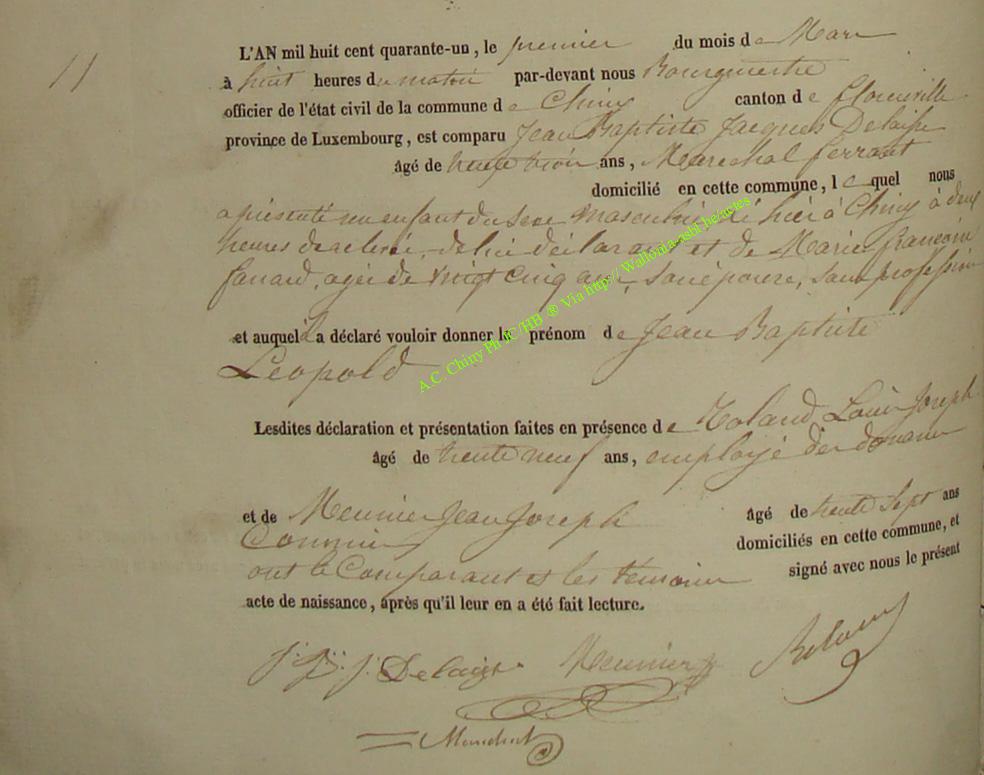 11
L'AN mil huit cent quarante-un, le premier du mois de Mars
à huit heures du matin par-devant nous Bourgmestre
officier de l'état civil de la commune de Chiny canton de florenville
province de Luxembourg, est comparu Jean Baptiste Jacques Delaisse
âgé de trente trois ans, Marechal ferrant
domicilié en cette commune, lequel nous
a présenté un enfant du sexe masculin né hier à Chiny à deux
heures de relevée, de lui déclarant et de Marie françoise
fanard, agée de vingt cinq ans, son épouse, sans profession
et auquel il a déclaré vouloir donner le prénom de Jean Baptiste
Leopold
Lesdites déclaration et présentation faites en présence de Roland Louis Joseph
âgé de trente neuf ans, employé des douanes
et de Meunier Jean Joseph âgé de trente sept ans
domiciliés en cette commune, et
ont le Comparant et les témoins signé avec nous le présent
acte de naissance, après qu'il leur en a été fait lecture.
J. Bte J. Delaisse Meunier JJ Roland
A.C. Chiny Ph JC/HB ® Via http://Wallonia-asbl.be/actes